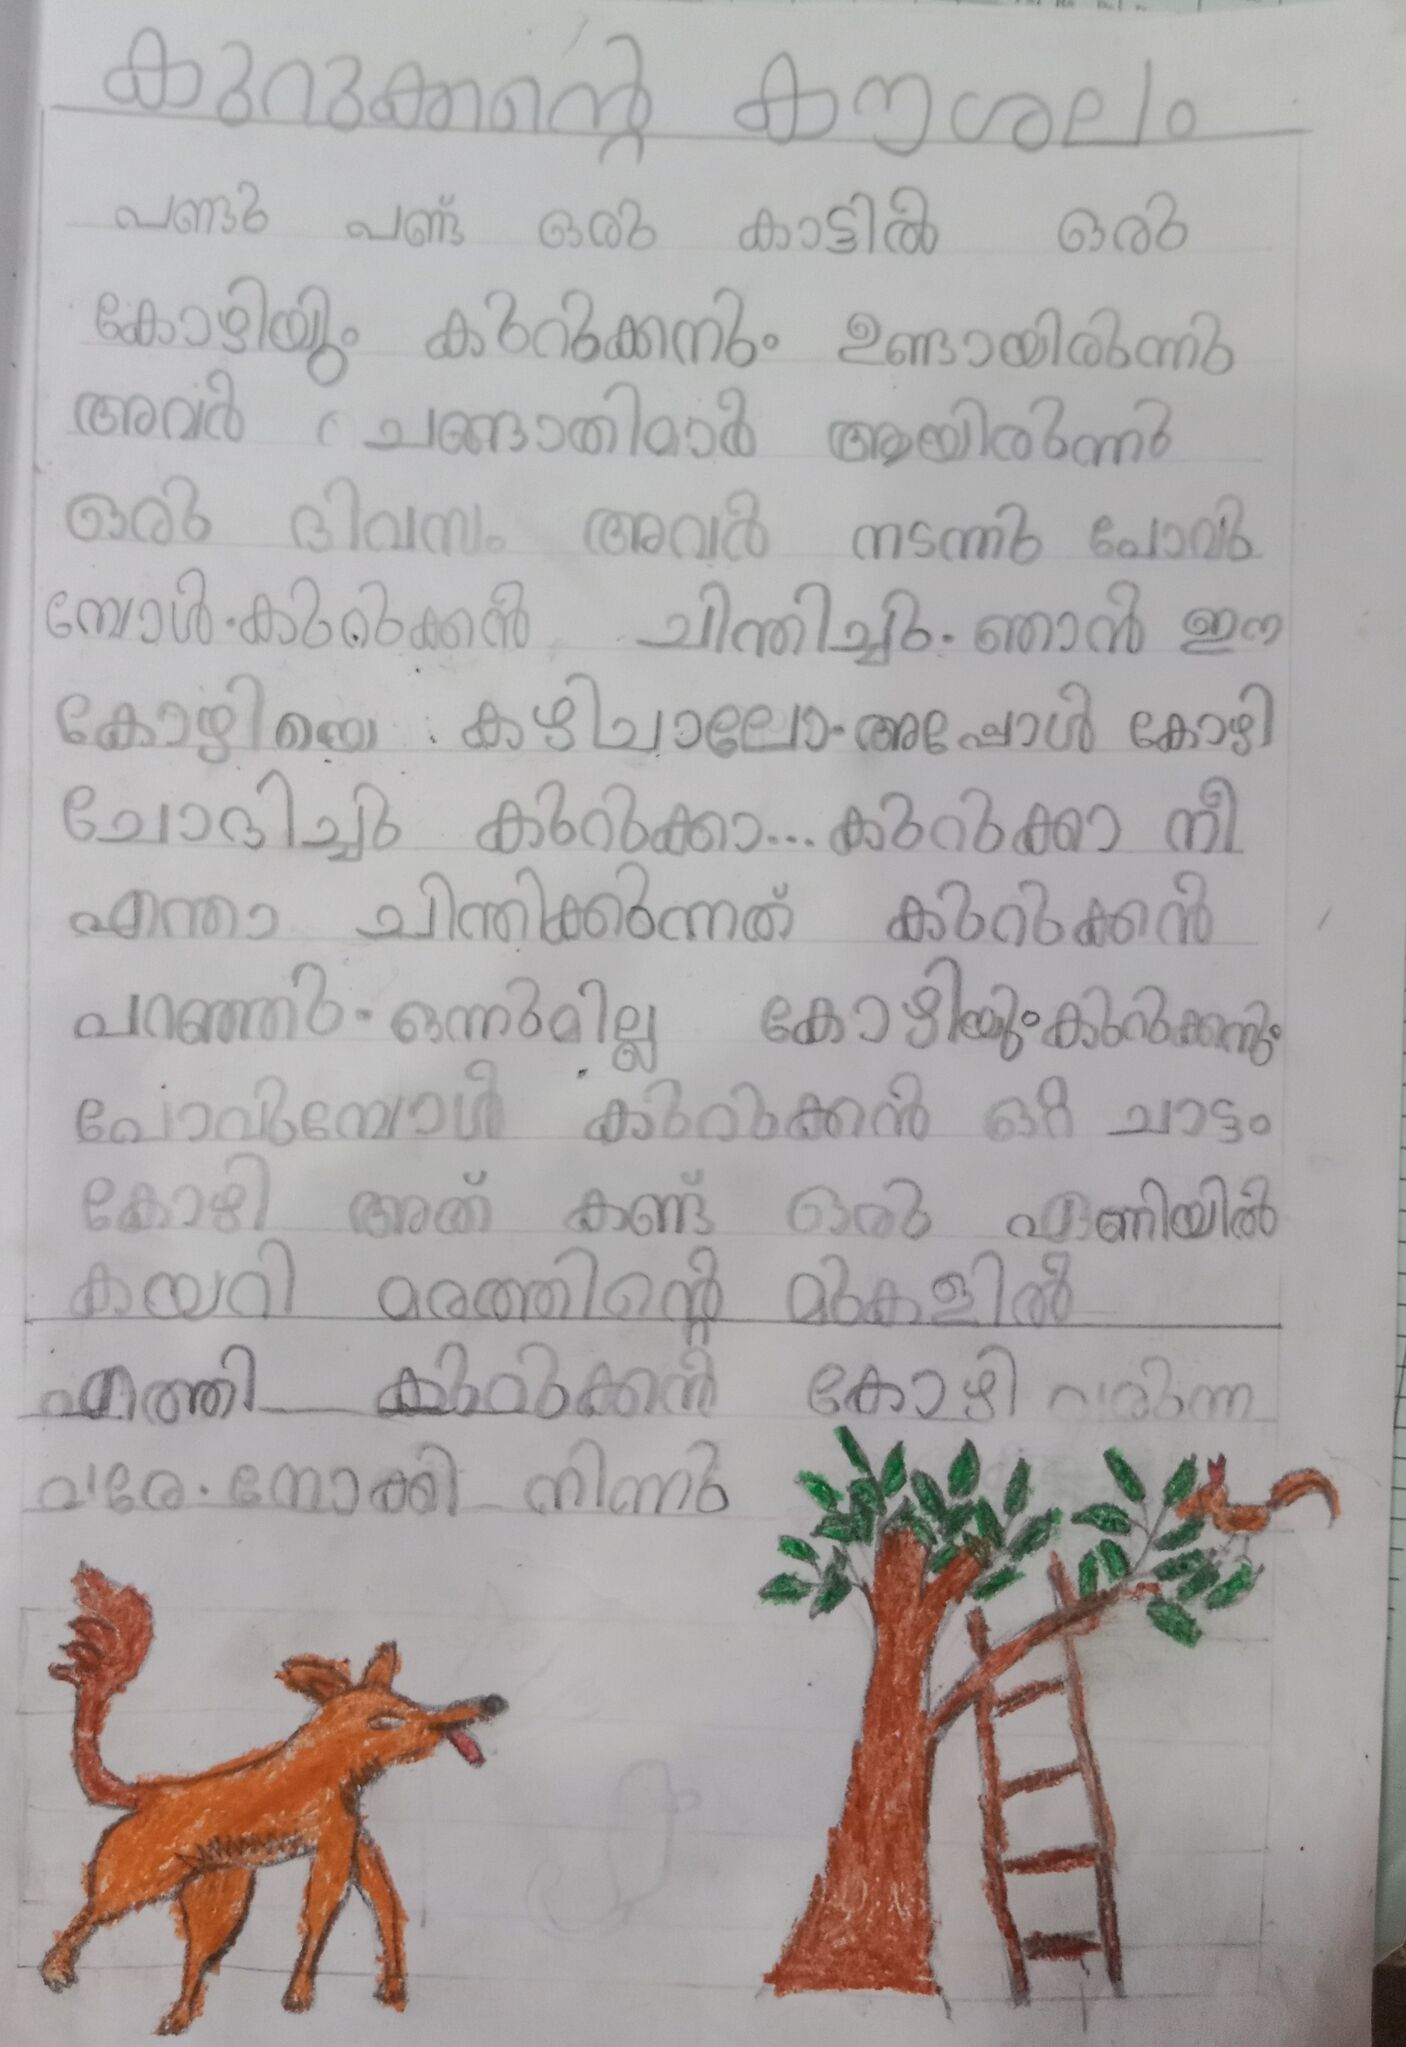 കുറുക്കന്റെ കൗശലം
പണ്ടു പണ്ട് ഒരു കാട്ടിൽ ഒരു
കോഴിയും കുറുക്കനും ഉണ്ടായിരുന്നു
അവർ ചങ്ങാതിമാർ ആയിരുന്നു
ഒരു ദിവസം അവർ നടന്നു പോവു
മ്പോൾ. കുറുക്കൻ ചിന്തിച്ചു. ഞാൻ ഇന
കോഴിയെ കഴിചാലോ. അപ്പോൾ കോഴി
ചോദിച്ചു കുറുക്കാ... കുറുക്കാ നീ
എന്താ ചിന്തിക്കുന്നത് കുറുക്കൻ
പറഞ്ഞു. ഒന്നുമില്ല കോഴിയും കുറുക്കനും
പോവുമ്പോൾ കുറുക്കൻ ഒറ്റ ചാട്ടം
കോഴി അത് കണ്ട് ഒരു ഏണിയിൽ
കയറി മരത്തിന്റെ മുകളിൽ
എത്തി കുറുക്കൻ കോഴി വരുന്ന
വരേ. നോക്കി നിന്നു